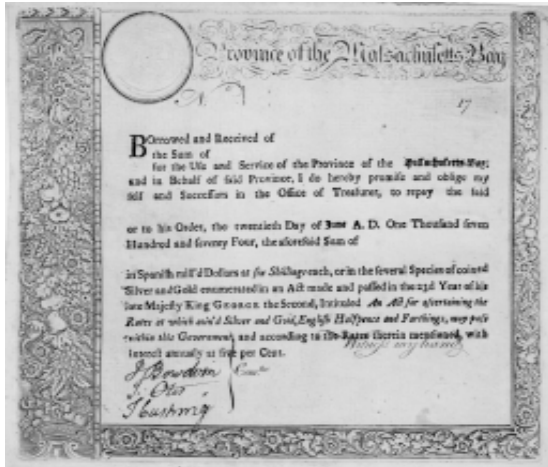 Province of the Massachusetts Bay
N.
17
BOrrowed and Received of
the Sum of
for the Use and Service of the Province of the Massachusetts-Bay;
and in Behalf of said Province, I do hereby promise and oblige my
self and Successors in the Office of Treasurer, to repay the said
or to his Order, the twentieth Day of June A. D. One Thousand seven
Hundred and seventy Four, the aforesaid Sum of
in Spanish mill'd Dollars at six Shillings each, or in the several Species of coined
Silver and Gold enumerated in an Act made and passed in the 23d Year of his
late Majesty King GEORGE the Second, Intituled An Act for ascertaining the
Rates at which coin'd Silver and Gold, English Halfpence and Farthings, may pass
within this Government, and according to the Rates therein mentioned, with
Interest annually at five per Cent.
Witness my hand
J Bowdoin
J. Otis
T Cushing
Com.tee